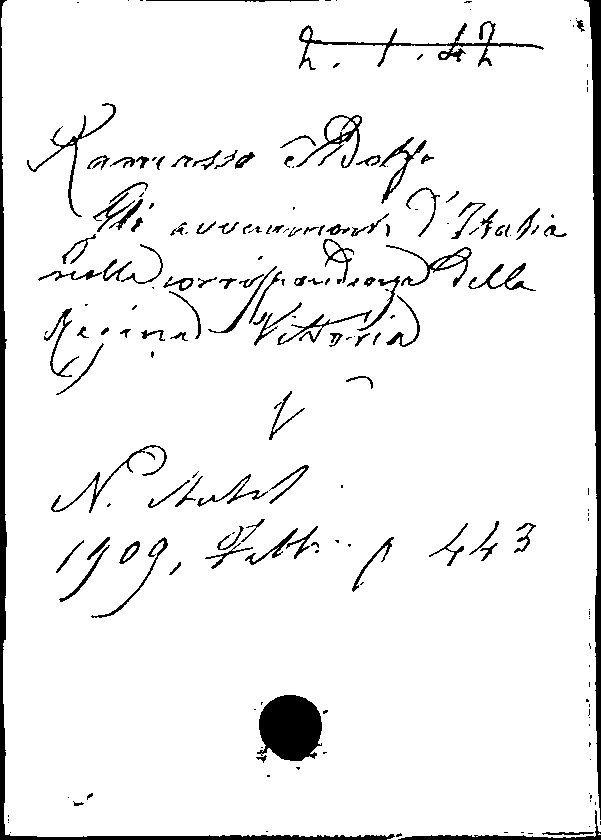 2. 1. 42
Ramasso Adolfo
Gli avvenimenti d'Italia
nella corrispondenza della
Regina Vittoria
V
N. Antol.
1909, Febb. p 443